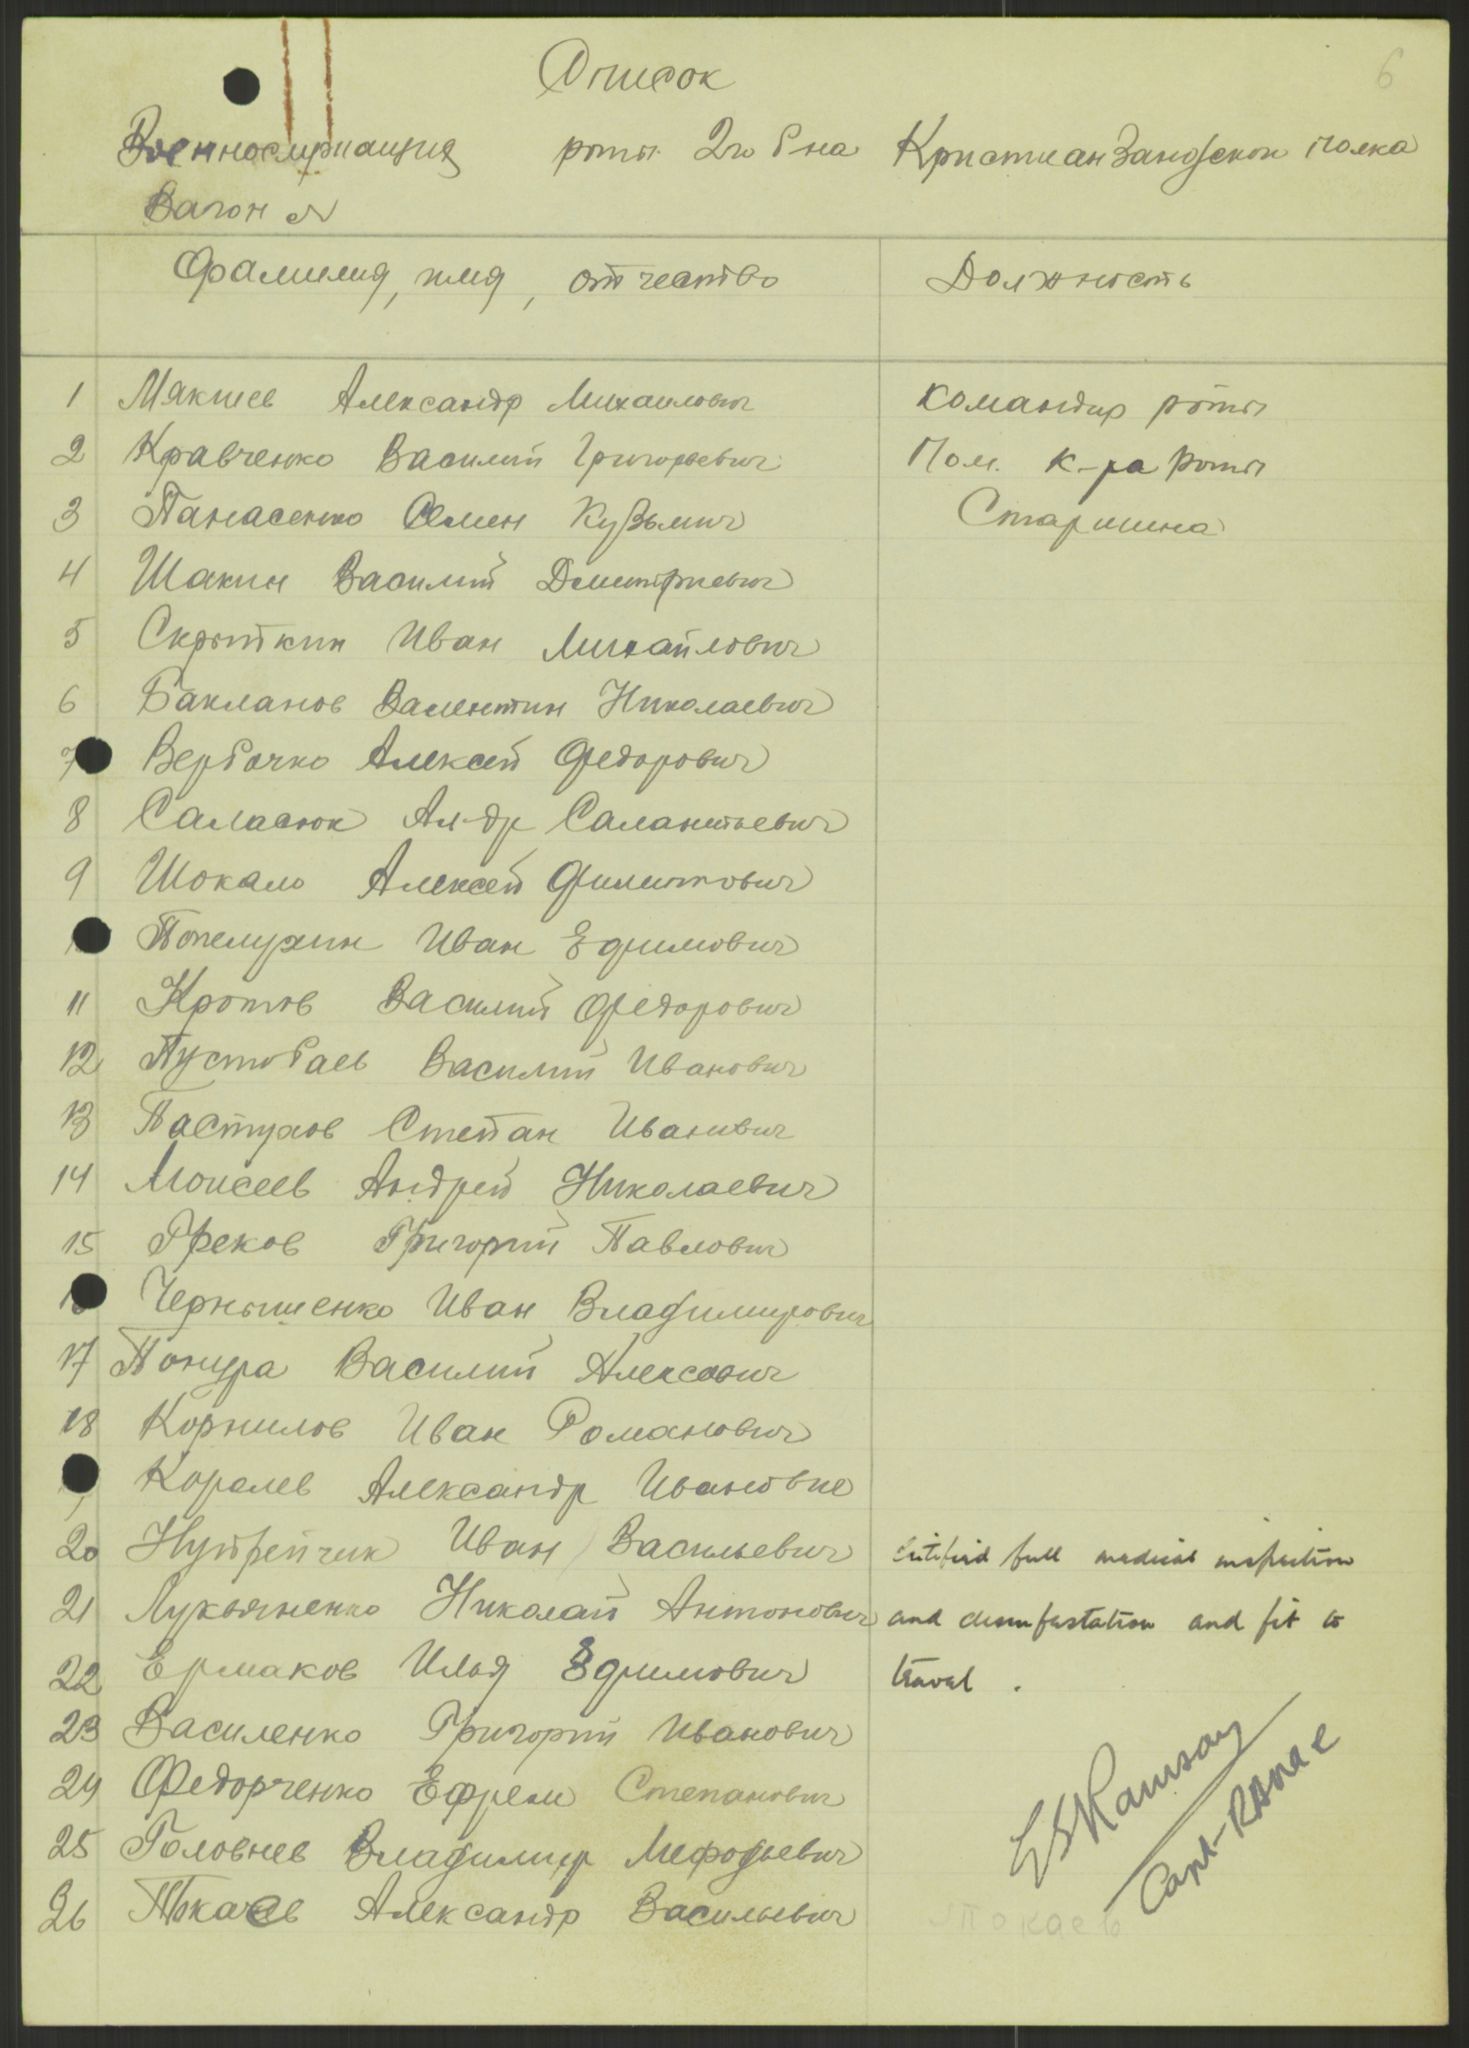 6
Список
Военнослужащия роты 2го б-на Кристианзандской полка
Вагон №
Фамилия, имя, отчество Должность
1 Мякшев Александр Михаилович командир роты
2 Кравченко Василий Григорьевич Пом. к-ра роты
3 Панасенко Семен Кузьмич Старшина
4 Шакин Василий Дмитриевич
5 Скрыткин Иван Михайлович
6 Бакланов Валентин Николаевич
7 Вербачко Алексей Федорович
8 Саласюк Ал-др Салантьевич
9 Шокало Алексей Филиппович
Попелухин Иван Ефимович
11 Кротов Василий Федорович
12 Пустобаев Василий Иванович
13 Пастухов Степан Иванович
14 Моисеев Андрей Николаевич
15 Греков Григорий Павлович
16 Чернышенко Иван Владимирович
17 Понура Василий Алексович
18 Корнилов Иван Романович
Каралев Александр Иванович
20 Нутрейчик Иван Васильевич Certified full medical inspection
21 Лукьяненко Николай Антонович and disinfestation and fit to
22 Ермаков Илья Ефимович travel.
23 Василенко Григорий Иванович
24 Федорченко Ефрем Степанович
25 Головнев Владимир Мефодьевич
26 Токаев Александр Васильевич
ESRamsay
Capt- RAMC
Токаев